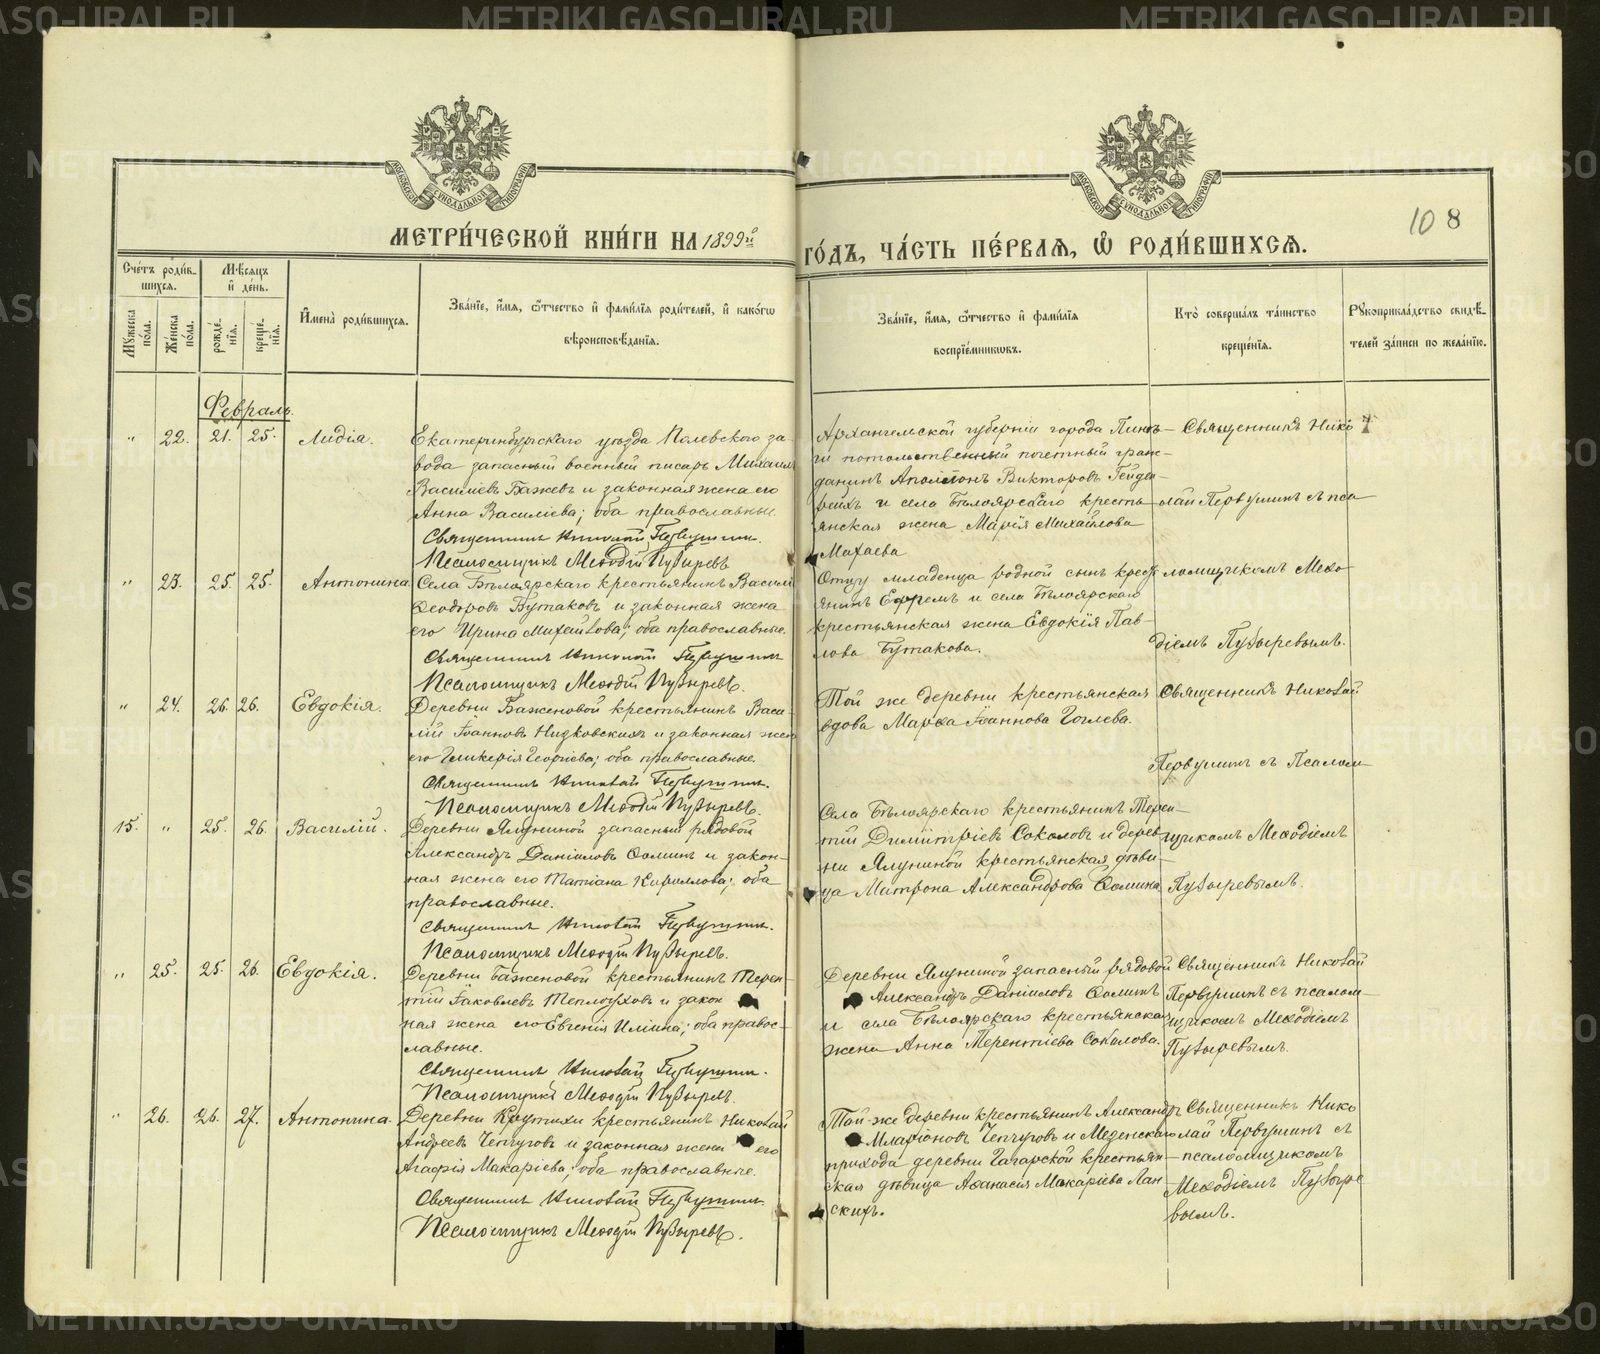 МЕТРИ́ЧЕСКОЙ КНИ́ГИ НА 1899й
ГО́ДЪ, ЧА́СТЬ ПЕ́РВАЯ, Ѡ РОДИ́ВШИХСЯ.
10 8
Сче́тъ роди́в-
шихся.
Мѣ́сяцъ
и҆ де́нь.
Мꙋ́жеска
по́ла.
Же́нска
по́ла.
рожде́-
нїя.
креще́-
нїя.
И҆мена̀ роди́вшихся.
Зва́нїе, и҆́мя, ѻ҆́тчество и҆ фами́лїя роди́телей, и҆ како́гѡ
вѣроисповѣ́данїя.
Зва́нїе, и҆́мя, ѻ҆́тчество и҆ фами́лїя
воспрїе́мникѡвъ.
Кто̀ соверша́лъ та́инство
креще́нїя.
Рꙋкоприкла́дство свидѣ́-
телей за́писи по жела́нїю.
Февраль.
" 22. 21. 25. Лидія.
Екатеринбургскаго уѣзда Полевского за-
вода запасный военный писарь Михаил
Василіевъ Бажевъ и законная жена его
Анна Василіева; оба православные.
Священникъ Николай Первушинъ.
Псаломщикъ Меѳодій Пузыревъ
Архангельской губерніи города Пине-
ги потомственный почетный граж-
данинъ Аполлонъ Викторовъ Гейде-
рейхъ и села Бѣлоярскаго кресть-
янская жена Марія Михайлова
Махаева
Священникъ Нико
лай Первушинъ съ пса
" 23. 25. 25. Антонина.
Села Бѣлоярскаго крестьянинъ Васили
Ѳеодоровъ Бутаковъ и законная жена
его Ирина Михайлова; оба православные.
Священникъ Николай Первушинъ
Псаломщикъ Меѳодій Пузыревъ.
Отцу младенца родной сынъ крест
янинъ Ефремъ и села Бѣлоярскаго
крестьянская жена Евдокія Пав-
лова Бутакова.
ломщикомъ Меѳо
діемъ Пузыревымъ.
" 24. 26. 26. Евдокія.
Деревни Баженовой крестьянинъ Васи-
лій Іоанновъ Низковскихъ и законная жен
его Гликерія Георгіева; оба православные.
Священникъ Николай Первушинъ.
Псаломщикъ Меѳодій Пузыревъ.
Той же деревни крестьянская
вдова Марѳа Іоаннова Гоглева.
Священникъ Николай
Первушинъ съ Псалом
15. " 25. 26. Василій.
Деревни Ялуниной запасный рядовой
Александръ Даніиловъ Ѳоминъ и закон-
ная жена его Татіана Кириллова; оба
православные.
Священникъ Николай Первушинъ.
Псаломщикъ Меѳодій Пузыревъ.
Села Бѣлоярскаго крестьянинъ Терен-
тій Димитріевъ Соколовъ и дерев-
ни Ялуниной крестьянская дѣви-
ца Матрона Александрова Ѳомина
щикомъ Меѳодіемъ
Пузыревымъ.
" 25. 25. 26. Евдокія.
Деревни Баженовой крестьянинъ Терен-
тій Іаковлевъ Теплоуховъ и закон
ная жена его Евгенія Иліина; оба правос-
лавные.
Священникъ Николай Первушинъ.
Псаломщикъ Меѳодій Пузыревъ.
Деревни Ялуниной запасный рядовой
Александръ Даніиловъ Ѳоминъ
и села Бѣлоярскаго крестьянская
жена Анна Терентіева Соколова.
Священникъ Николай
Первушинъ съ псалом-
щикомъ Меѳодіемъ
Пузыревымъ.
" 26. 26. 27. Антонина.
Деревни Крутихи крестьянинъ Николай
Андреевъ Чепчуговъ и законная жена его
Агафія Макаріева; оба православные.
Священникъ Николай Первушинъ.
Псаломщикъ Меѳодій Пузыревъ.
Той-же деревни крестьянинъ Александр
Иларіоновъ Чепчуговъ и Мезенскаго
прихода деревни Гагарской крестьян-
ская дѣвица Аѳанасія Макаріева Лан-
скихъ.
Священникъ Нико
лай Первушинъ съ
псаломщикомъ
Меѳодіемъ Пузыре
вымъ.
METRIKI.GASO-URAL.RU